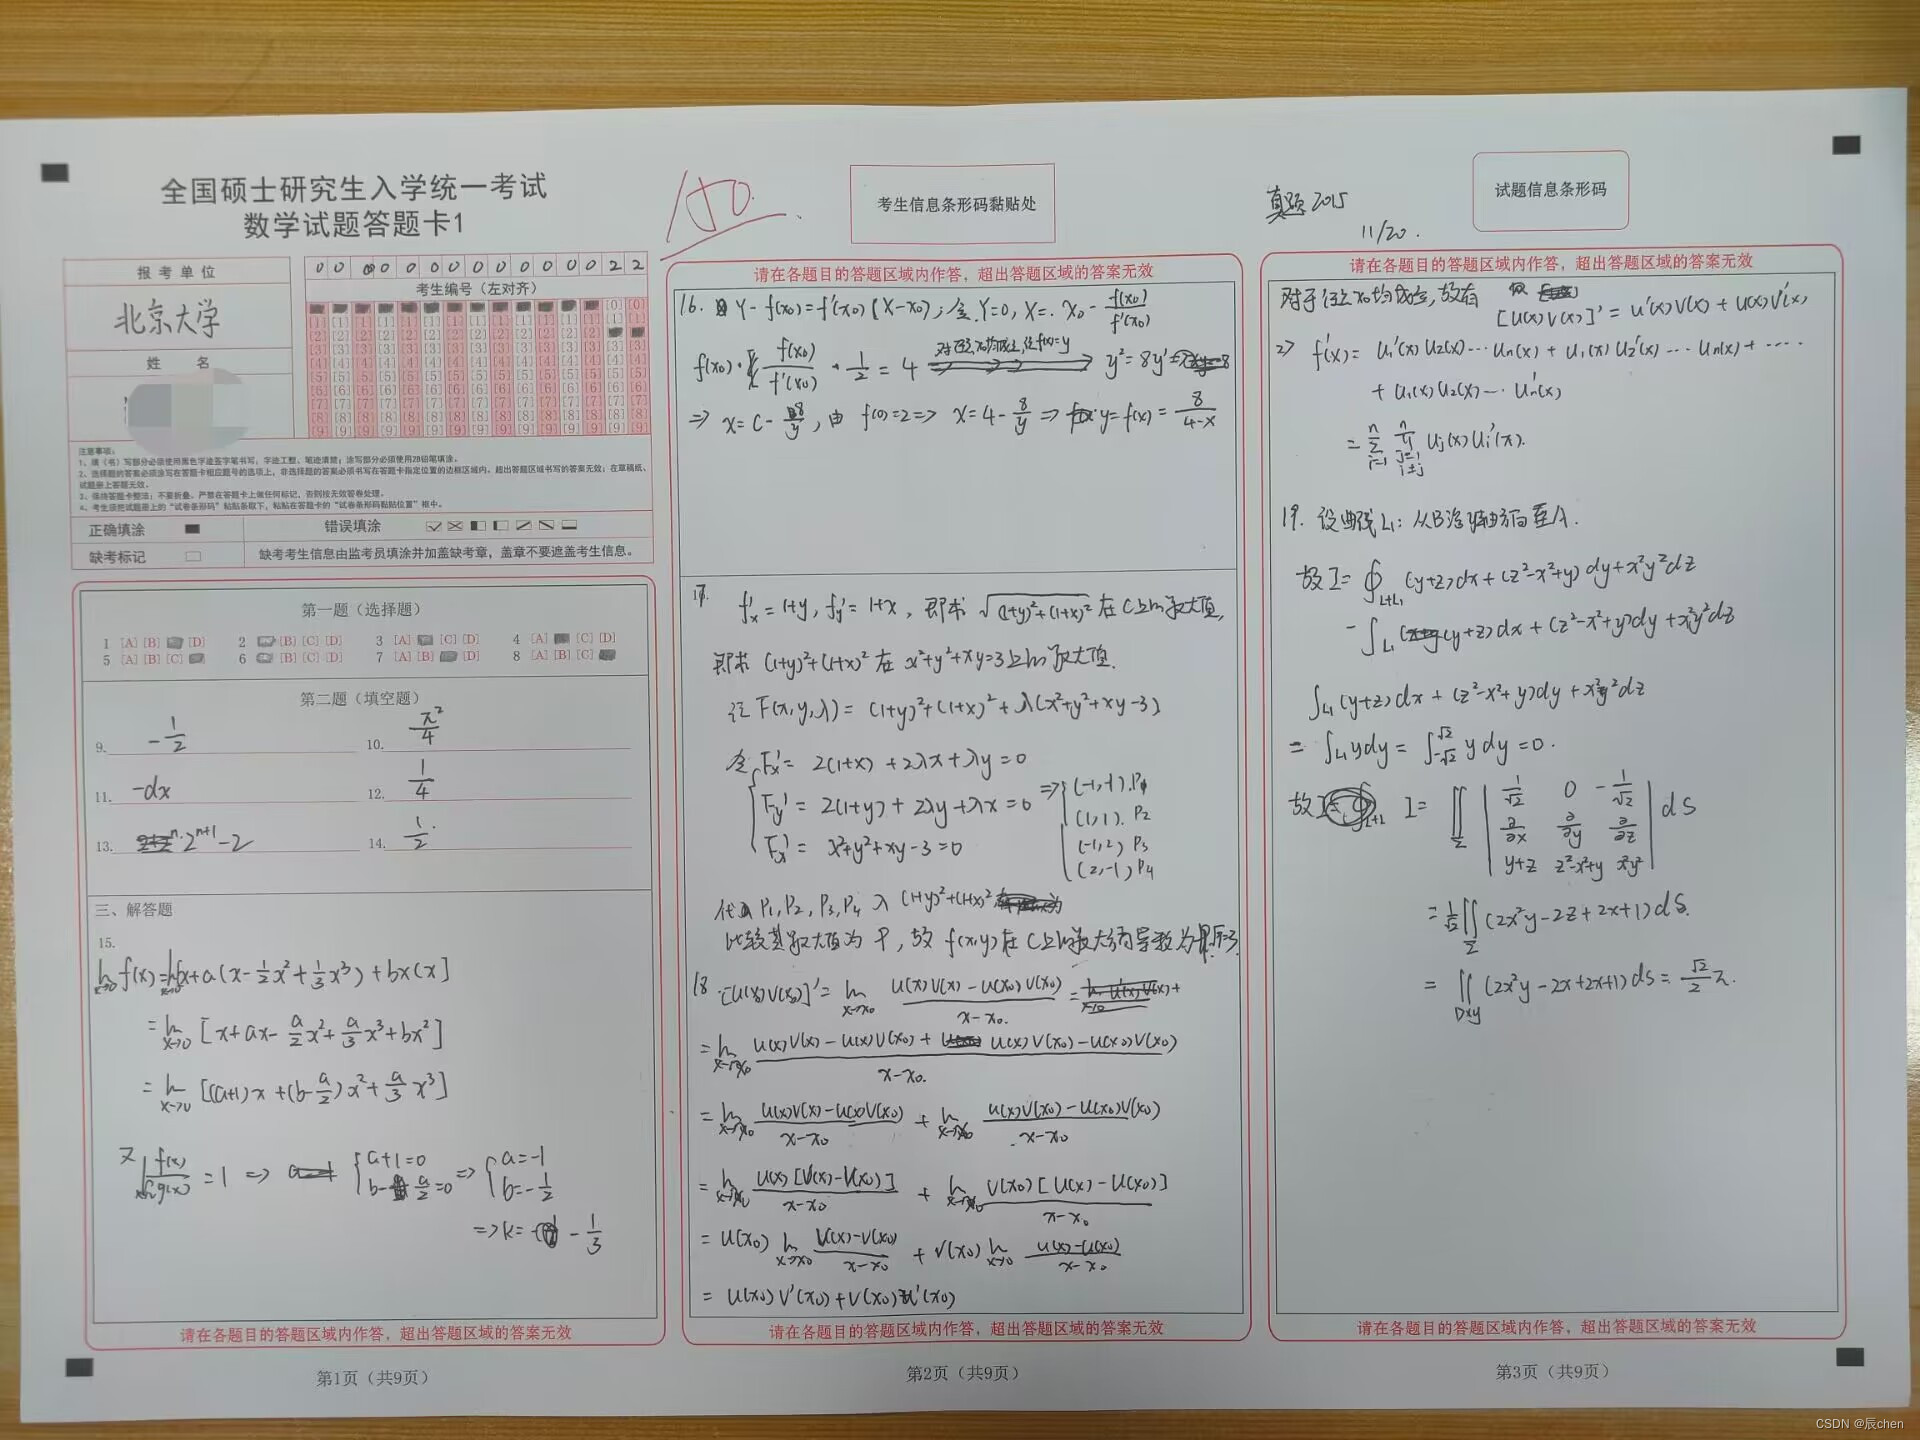 全国硕士研究生入学统一考试
数学试题答题卡1
报考单位
北京大学
姓 名
0 0 0 0 0 0 0 0 0 0 0 0 0 2 2
考生编号（左对齐）
注意事项：
1、填（书）写部分必须使用黑色字迹签字笔书写，字迹工整、笔迹清楚；涂写部分必须使用2B铅笔填涂。
2、选择题的答案必须涂写在答题卡相应题号的选项上，非选择题的答案必须书写在答题卡指定位置的边框区域内。超出答题区域书写的答案无效；在草稿纸、
试题册上答题无效。
3、保持答题卡整洁；不要折叠。严禁在答题卡上做任何标记，否则按无效答卷处理。
4、考生须把试题册上的“试卷条形码”粘贴条取下，粘贴在答题卡的“试卷条形码黏贴位置”框中。
正确填涂
错误填涂
缺考标记
缺考考生信息由监考员填涂并加盖缺考章，盖章不要遮盖考生信息。
第一题（选择题）
1 [A] [B] [D] 2 [B] [C] [D] 3 [A] [C] [D] 4 [A] [C] [D]
5 [A] [B] [C] 6 [B] [C] [D] 7 [A] [B] [D] 8 [A] [B] [C]
第二题（填空题）
9. -1/2 10. π²/4
11. -dx 12. 1/4
13. 2ⁿ⁺¹-2 14. 1/2
三、解答题
15.
lim x→0 f(x)=lim x→0 [x+a(x-1/2x²+1/3x³)+bx(x)]
=lim x→0 [x+ax-a/2x²+a/3x³+bx²]
=lim x→0 [(a+1)x+(b-a/2)x²+a/3x³]
又 lim x→0 f(x)/g(x)=1 => {a+1=0 b-a/2=0 => {a=-1 b=-1/2
=>k=-1/3
请在各题目的答题区域内作答，超出答题区域的答案无效
第1页（共9页）
150.
考生信息条形码黏贴处
请在各题目的答题区域内作答，超出答题区域的答案无效
16. Y-f(x₀)=f'(x₀)(X-x₀)；令Y=0, X=x₀-f(x₀)/f'(x₀)
f(x₀)·f(x₀)/f'(x₀)·1/2=4 对任意x₀均成立,记f(x)=y y²=8y'
=> x=C-8/y, 由 f(0)=2 => x=4-8/y => y=f(x)=8/(4-x)
17. f'x=1+y, f'y=1+x, 即求 √((1+y)²+(1+x)²) 在C上的最大值,
即求 (1+y)²+(1+x)² 在 x²+y²+xy=3上的最大值.
记 F(x,y,λ)=(1+y)²+(1+x)²+λ(x²+y²+xy-3)
令 {F'x=2(1+x)+2λx+λy=0
F'y=2(1+y)+2λy+λx=0 => {(-1,-1).P₁ (1,1).P₂ (-1,2) P₃ (2,-1)P₄
F'x=x²+y²+xy-3=0
代入 P₁,P₂,P₃,P₄ 入 (1+y)²+(1+x)²
比较其最大值为 9, 故 f(x,y)在C上的最大方向导数为 3.
18. [u(x)v(x)]'=lim x→x₀ (u(x)v(x)-u(x₀)v(x₀))/(x-x₀)
=lim x→x₀ (u(x)v(x)-u(x)v(x₀)+u(x)v(x₀)-u(x₀)v(x₀))/(x-x₀)
=lim x→x₀ (u(x)v(x)-u(x)v(x₀))/(x-x₀)+lim x→x₀ (u(x)v(x₀)-u(x₀)v(x₀))/(x-x₀)
=lim x→x₀ u(x)[v(x)-v(x₀)]/(x-x₀)+lim x→x₀ v(x₀)[u(x)-u(x₀)]/(x-x₀)
=u(x₀) lim x→x₀ (v(x)-v(x₀))/(x-x₀)+v(x₀) lim x→x₀ (u(x)-u(x₀))/(x-x₀)
=u(x₀)v'(x₀)+v(x₀)u'(x₀)
请在各题目的答题区域内作答，超出答题区域的答案无效
第2页（共9页）
真题2015
11/20.
试题信息条形码
请在各题目的答题区域内作答，超出答题区域的答案无效
对于任意x₀均成立,故有 [u(x)v(x)]'=u'(x)v(x)+u(x)v'(x)
2> f'(x)=u₁'(x)u₂(x)…uₙ(x)+u₁(x)u₂'(x)…uₙ(x)+……
+u₁(x)u₂(x)…uₙ'(x)
=Σ(i=1,n) Π(j=1,i≠j,n) uⱼ(x)uᵢ'(x).
19. 设曲线L₁: 从B沿y轴方向至A.
故I=∮L+L₁ (y+z)dx+(z²-x²+y)dy+x²y²dz
-∫L₁ (y+z)dx+(z²-x²+y)dy+x²y²dz
∫L₁(y+z)dx+(z²-x²+y)dy+x²y²dz
=∫L₁ydy=∫(-√2,√2) ydy=0.
故 I=∬Σ |1/√2 0 -1/√2; ∂/∂x ∂/∂y ∂/∂z; y+z z²-x²+y x²y²| dS
=1/√2∬Σ(2x²y-2z+2x+1)dS.
=∬Dxy(2x²y-2x+2x+1)dS=√2/2π.
请在各题目的答题区域内作答，超出答题区域的答案无效
第3页（共9页）
CSDN @辰chen